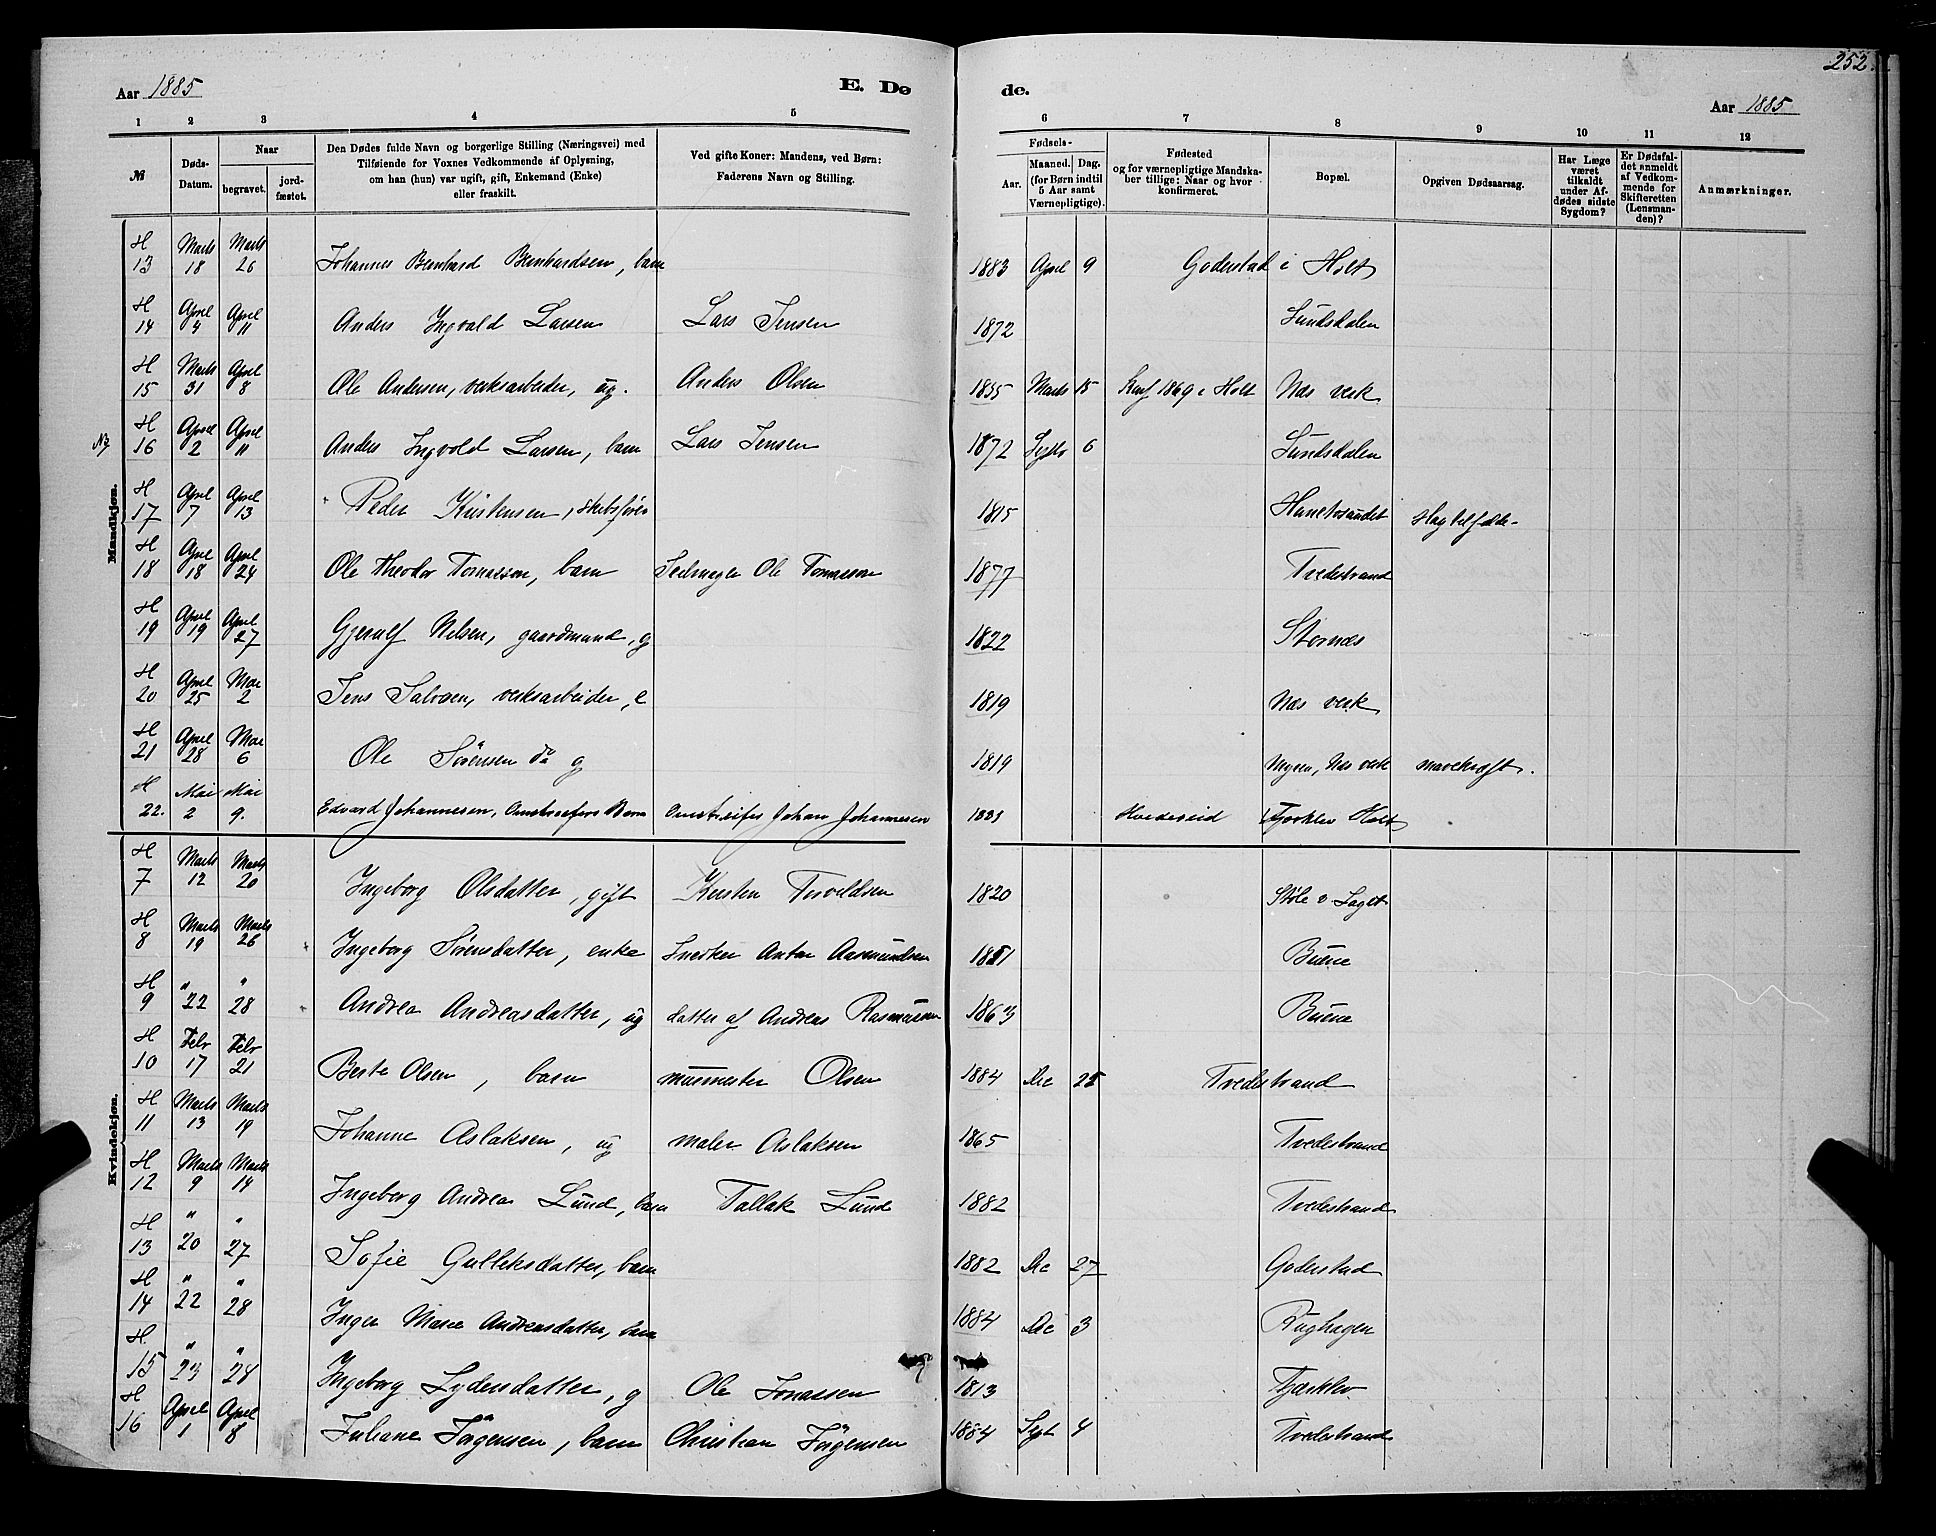 252.
Aar 1885 E. Dø
de. Aar 1885
1 2 3 4 5
6 7 8 9 10 11 12
№
Døds-Datum.
Naar
begravet.
jord-fæstet.
Den Dødes fulde Navn og borgerlige Stilling (Næringsvei) med
Tilføiende for Voxnes Vedkommende af Oplysning,
om han (hun) var ugift, gift, Enkemand (Enke)
eller fraskilt.
Ved gifte Koner: Mandens, ved Børn:
Faderens Navn og Stilling.
Fødsels-
Aar.
Maaned. Dag.
(for Børn indtil
5 Aar samt
Værnepligtige).
Fødested
og for værnepligtige Mandska-
ber tillige: Naar og hvor
konfirmeret.
Bopæl.
Opgiven Dødsaarsag.
Har Læge
været
tilkaldt
under Af-
dødes sidste
Sygdom?
Er Dødsfal-
det anmeldt
af Vedkom-
mende for
Skifteretten
(Lensman-
den)?
Anmærkninger.
Mandkjøn.
H 13 Marts 18 Marts 26 Johannes Bernhard Bernhardsen, barn 1883 April 9 Goderstad i Holt
H 14 April 4 April 11 Anders Ingvald Larsen Lars Jensen 1872 Lundsdalen
H 15 Marts 31 April 8 Ole Andersen, verksarbeider, ug. Anders Olsen 1855 Marts 15 Konf 1869 i Holt Næs verk
H 16 April 2 April 11 Anders Ingvold Larsen, barn Lars Jensen 1872 Septr 6 Lundsdalen
H 17 April 7 April 13 Peder Kristensen, skibsfører 1815
H 18 April 18 April 24 Ole Theodor Tomassen, barn Ole Tomassen 1877 Tvedestrand
H 19 April 19 April 27 Gjerulf Nilsen, gaardmand, g 1822 Stornæs
H 20 April 25 Mai 2 Jens Salvesen, verksarbeider, e 1819 Næs verk
H 21 April 28 Mai 6 Ole Sørensen do g 1819 Myren, Næs verk mavekræft.
H 22. Mai 2 Mai 9. Edvard Johannesen, Barn Johan Johannesen 1883 Hvideseid Fjærklev Holt
Kvindekjøn.
H 7 Marts 12 Marts 20 Ingeborg Olsdatter, gift Kersten Torvildsen 1820 Støle v. Laget
H 8 Marts 19 Marts 26 Ingeborg Sørensdatter, enke Snedker Anton Aasmundsen 1851 Buene
H 9 " 22 " 28 Andrea Andreasdatter, ug datter af Andreas Rasmussen 1863 Buene
H 10 Febr 17 Febr 21 Berte Olsen, barn murmester Olsen 1884 Dec 25 Tvedestrand
H 11 Marts 13 Marts 19 Johanne Aslaksen, ug maler Aslaksen 1865 Tvedestrand
H 12 Marts 9 Marts 14 Ingeborg Andrea Lund, barn Tallak Lund 1882 Tvedestrand
H 13 " 20 " 27 Sofie Gulleksdatter, barn 1882 Dec 27 Goderstad
H 14 " 22 " 28 Inger Marie Andreasdatter, barn 1884 Dec 3 Rughagen
H 15 " 23 " 28 Ingeborg Lydersdatter, g Ole Jonassen 1813 Fjærklev
H 16 April 1 April 8 Juliane Jørgensen, barn Christian Jørgensen 1884 Sept 4 Tvedestrand